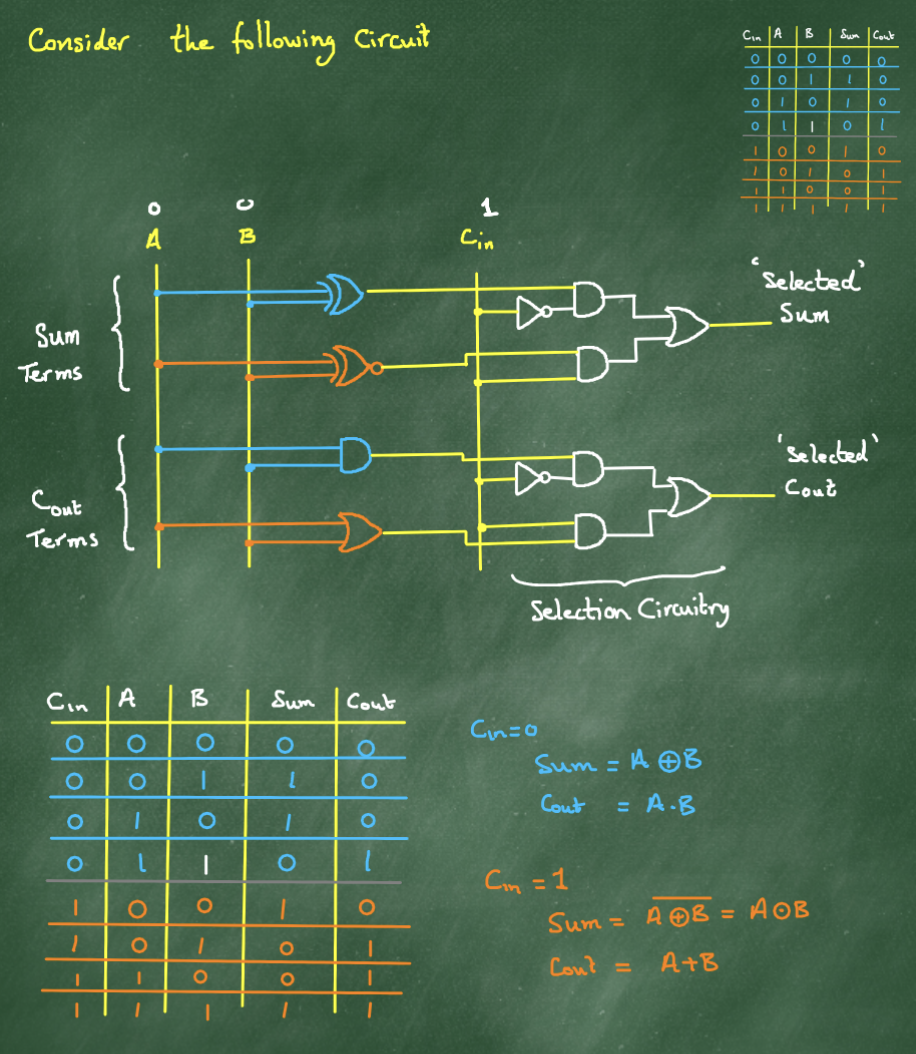 Consider the following Circuit
Cin A B Sum Cout
0 0 0 0 0
0 0 1 1 0
0 1 0 1 0
0 1 1 0 1
1 0 0 1 0
1 0 1 0 1
1 1 0 0 1
1 1 1 1 1
0 0 1
A B Cin
Sum
Terms
Cout
Terms
'Selected'
Sum
'Selected'
Cout
Selection Circuitry
Cin A B Sum Cout
0 0 0 0 0
0 0 1 1 0
0 1 0 1 0
0 1 1 0 1
1 0 0 1 0
1 0 1 0 1
1 1 0 0 1
1 1 1 1 1
Cin=0
Sum = A ⊕ B
Cout = A.B
Cin = 1
Sum = A̅ ̅⊕̅ ̅B̅ = A⊙B
Cout = A+B